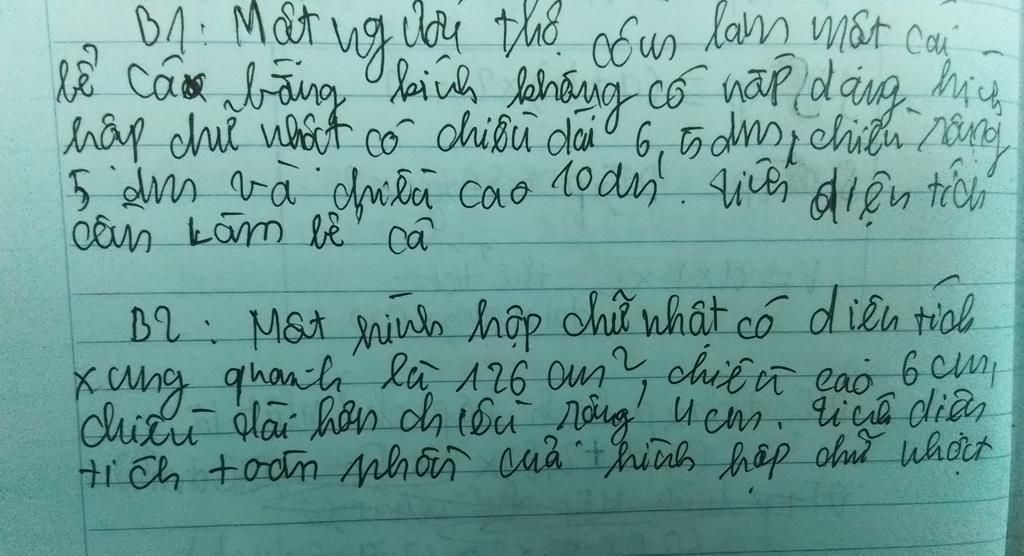 B1: Một người thợ cần làm một cái
bể cá bằng kính không có nắp dạng hình
hộp chữ nhật có chiều dài 6,5dm, chiều rộng
5 dm và chiều cao 10dm. Tính diện tích
cần làm bể cá
B2: Một hình hộp chữ nhật có diện tích
xung quanh là 126 cm², chiều cao 6 cm,
chiều dài hơn chiều rộng 4cm. Tính diện
tích toàn phần của hình hộp chữ nhật